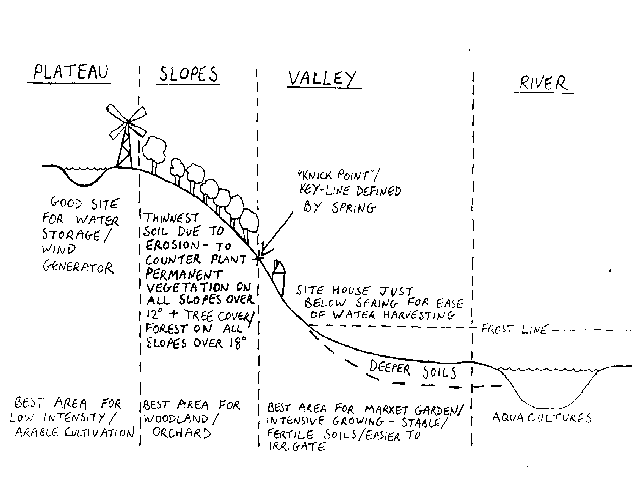 PLATEAU
SLOPES
VALLEY
RIVER
GOOD SITE
FOR WATER
STORAGE/
WIND
GENERATOR
THINNEST
SOIL DUE TO
EROSION - TO
COUNTER PLANT
PERMANENT
VEGETATION ON
ALL SLOPES OVER
12° + TREE COVER/
FOREST ON ALL
SLOPES OVER 18°
"KNICK POINT"/
KEY-LINE DEFINED
BY SPRING
SITE HOUSE JUST
BELOW SPRING FOR EASE
OF WATER HARVESTING
FROST LINE
DEEPER SOILS
BEST AREA FOR
LOW INTENSITY/
ARABLE CULTIVATION
BEST AREA FOR
WOODLAND/
ORCHARD
BEST AREA FOR MARKET GARDEN/
INTENSIVE GROWING - STABLE/
FERTILE SOILS/EASIER TO
IRRIGATE
AQUACULTURES